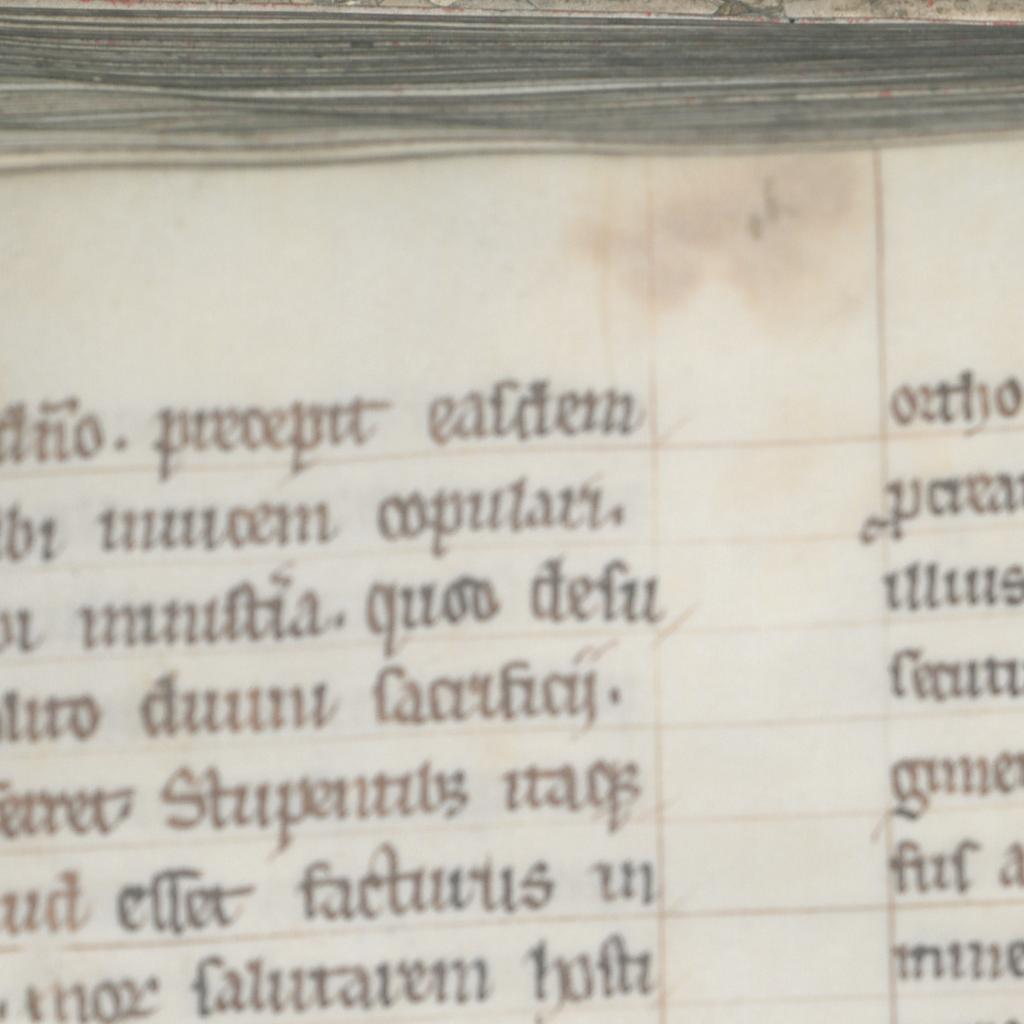 dn̄o. precepit easdem
ibi inuicem copulari.
ministr̃a. quod desu
diuini sacrificij.
ferret Stupentibꝫ itaqꝫ
esset facturus in
mox salutarem hosti
ortho
pcrear
illius
secutu
gimen
fus a
mine